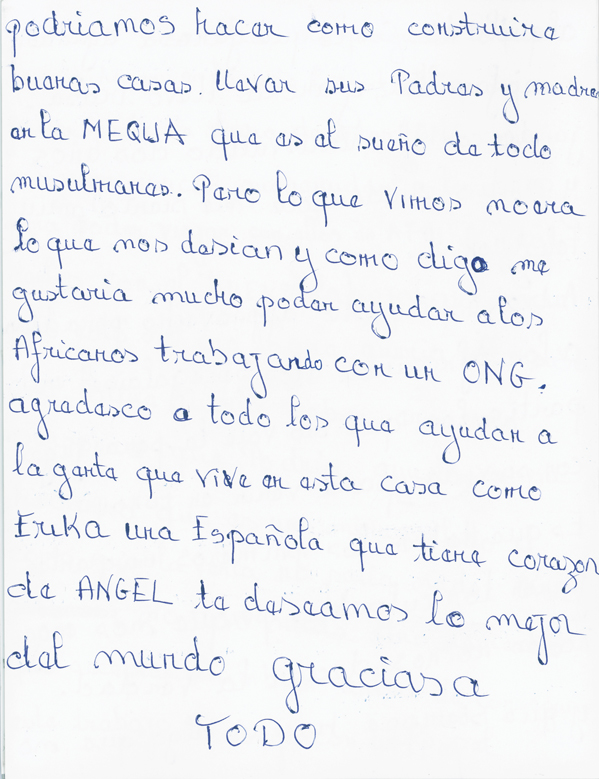 podriamos hacer como construire
buenas casas. llevar sus Padres y madre
en la MEQUA que es el sueño de todo
musulmanes. Pero lo que vimos no era
lo que nos desian y como digo me
gustaria mucho poder ayudar a los
Africanos trabajando con un ONG.
agradesco a todo los que ayudan a
la gente que vive en esta casa como
Erika una Española que tiene corazon
de ANGEL te deseamos lo mejor
del mundo gracias a
TODO